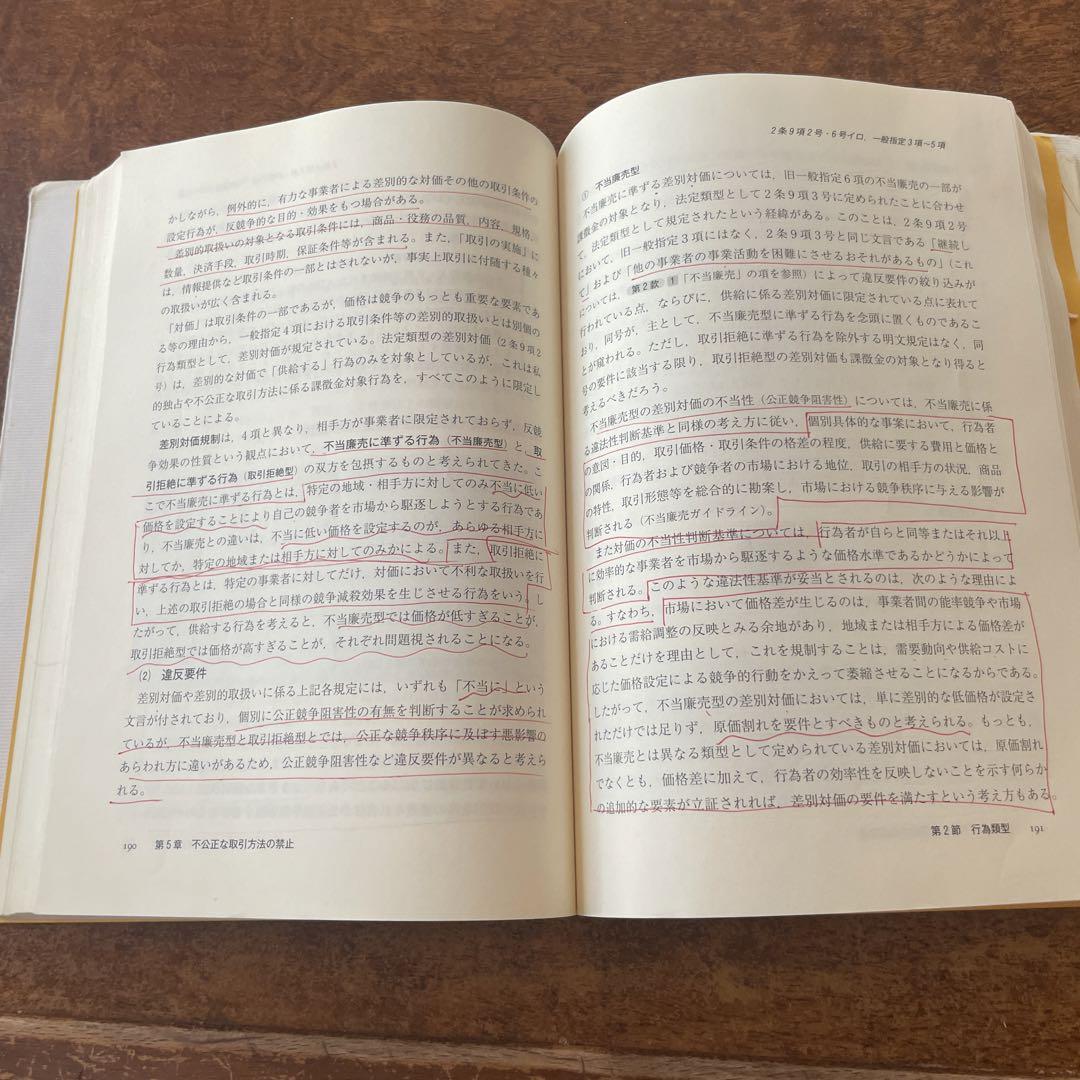 かしながら，例外的に，有力な事業者による差別的な対価その他の取引条件の
設定行為が，反競争的な目的・効果をもつ場合がある。
差別的取扱いの対象となる取引条件には，商品・役務の品質，内容，規格，
数量，決済手段，取引時期，保証条件等が含まれる。また，「取引の実施」に
は，情報提供など取引条件の一部とはされないが，事実上取引に付随する種々
の取扱いが広く含まれる。
「対価」は取引条件の一部であるが，価格は競争のもっとも重要な要素であ
る等の理由から，一般指定4項における取引条件等の差別的取扱いとは別個の
行為類型として，差別対価が規定されている。法定類型の差別対価（2条9項2
号）は，差別的な対価で「供給する」行為のみを対象としているが，これは私
的独占や不公正な取引方法に係る課徴金対象行為を，すべてこのように限定し
ていることによる。
差別対価規制は，4項と異なり，相手方が事業者に限定されておらず，反競
争効果の性質という観点において，不当廉売に準ずる行為（不当廉売型）と，取
引拒絶に準ずる行為（取引拒絶型）の双方を包摂するものと考えられてきた。こ
こで不当廉売に準ずる行為とは，特定の地域・相手方に対してのみ不当に低い
価格を設定することにより自己の競争者を市場から駆逐しようとする行為であ
り，不当廉売との違いは，不当に低い価格を設定するのが，あらゆる相手方に
対してか，特定の地域または相手方に対してのみかによる。また，取引拒絶に
準ずる行為とは，特定の事業者に対してだけ，対価において不利な取扱いを行
い，上述の取引拒絶の場合と同様の競争減殺効果を生じさせる行為をいう。し
たがって，供給する行為を考えると，不当廉売型では価格が低すぎることが，
取引拒絶型では価格が高すぎることが，それぞれ問題視されることになる。
(2) 違反要件
差別対価や差別的取扱いに係る上記各規定には，いずれも「不当に」という
文言が付されており，個別に公正競争阻害性の有無を判断することが求められ
ているが，不当廉売型と取引拒絶型とでは，公正な競争秩序に及ぼす悪影響の
あらわれ方に違いがあるため，公正競争阻害性など違反要件が異なると考えら
れる。
190 第5章 不公正な取引方法の禁止
2条9項2号・6号イロ，一般指定3項～5項
① 不当廉売型
不当廉売に準ずる差別対価については，旧一般指定6項の不当廉売の一部が
課徴金の対象となり，法定類型として2条9項3号に定められたことに合わせ
て，法定類型として規定されたという経緯がある。このことは，2条9項2号
において，旧一般指定3項にはなく，2条9項3号と同じ文言である「継続し
て」および「他の事業者の事業活動を困難にさせるおそれがあるもの」（これ
については，第2款 1「不当廉売」の項を参照）によって違反要件の絞り込みが
行われている点，ならびに，供給に係る差別対価に限定されている点に表れて
おり，同号が，主として，不当廉売型に準ずる行為を念頭に置くものであるこ
とが窺われる。ただし，取引拒絶に準ずる行為を除外する明文規定はなく，同
号の要件に該当する限り，取引拒絶型の差別対価も課徴金の対象となり得ると
考えるべきだろう。
不当廉売型の差別対価の不当性（公正競争阻害性）については，不当廉売に係
る違法性判断基準と同様の考え方に従い，個別具体的な事案において，行為者
の意図・目的，取引価格・取引条件の格差の程度，供給に要する費用と価格と
の関係，行為者および競争者の市場における地位，取引の相手方の状況，商品
の特性，取引形態等を総合的に勘案し，市場における競争秩序に与える影響が
判断される（不当廉売ガイドライン）。
また対価の不当性判断基準については，行為者が自らと同等またはそれ以上
に効率的な事業者を市場から駆逐するような価格水準であるかどうかによって
判断される。このような違法性基準が妥当とされるのは，次のような理由によ
る。すなわち，市場において価格差が生じるのは，事業者間の能率競争や市場
における需給調整の反映とみる余地があり，地域または相手方による価格差が
あることだけを理由として，これを規制することは，需要動向や供給コストに
応じた価格設定による競争的行動をかえって萎縮させることになるからである。
したがって，不当廉売型の差別対価においては，単に差別的な低価格が設定さ
れただけでは足りず，原価割れを要件とすべきものと考えられる。もっとも，
不当廉売とは異なる類型として定められている差別対価においては，原価割れ
でなくとも，価格差に加えて，行為者の効率性を反映しないことを示す何らか
の追加的な要素が立証されれば，差別対価の要件を満たすという考え方もある。
第2節 行為類型 191